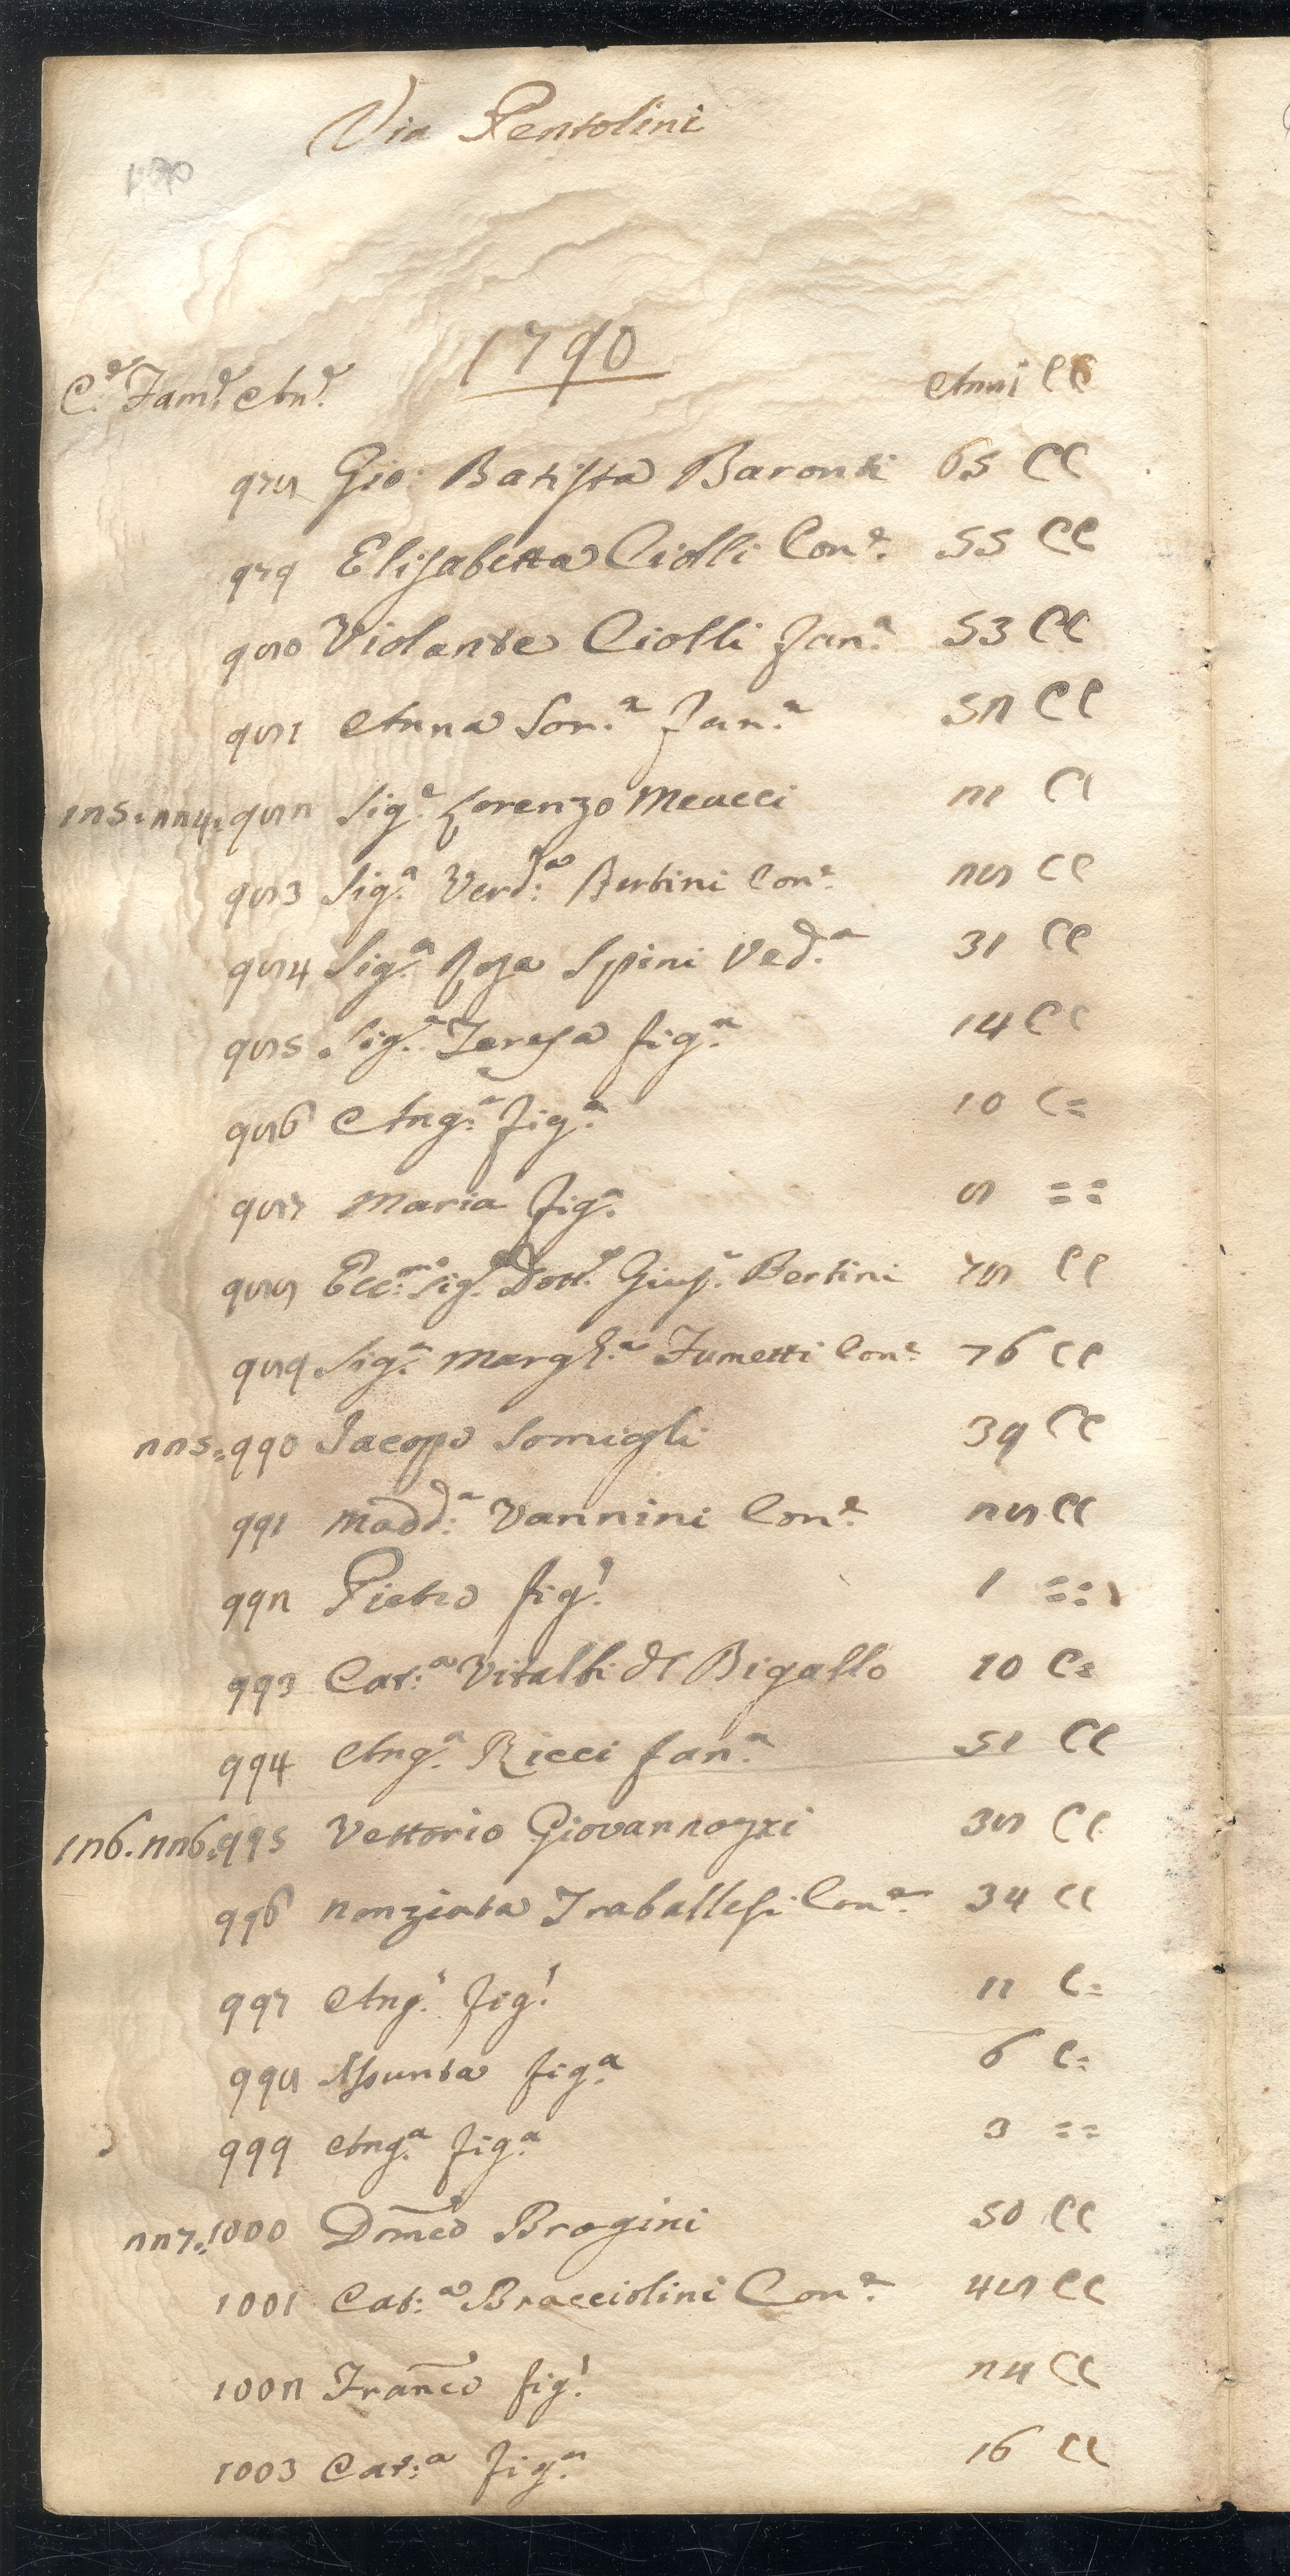 Via Pentolini
1790
C.e Fam.e An.e Anni CC
978 Gio: Batista Baronti 65 CC
979 Elisabetta Ciolli Con.e 55 CC
980 Violante Ciolli Fan.a 53 CC
981 Anna Sor.a Fan.a 52 CC
125. 224. 982 Sig.e Lorenzo Meucci 21 CC
983 Sig.a Verd:a Bertini Con.e 28 CC
984 Sig.a Rosa Spini Ved.a 31 CC
985 Sig.a Teresa fig.a 14 CC
986 Ang.a fig.a 10 C=
987 Maria fig.a 8 ==
988 Ecc.mo Sig.e Dott.e Gius.e Bertini 78 CC
989 Sig.a Margh.a Fumetti Con.e 76 CC
225. 990 Iacopo Somigli 39 CC
991 Madd:a Vannini Con.e 28 CC
992 Pietro fig.o 1 ==
993 Cat:a Vitalbi di Bigallo 10 C=
994 Ang.a Ricci fan.a 51 CC
126. 226. 995 Vettorio Giovannozzi 38 CC
996 Nonziata Traballesi Con.e 34 CC
997 Ang.o fig.o 11 C=
998 Assunta fig.a 6 C=
999 Ang.a fig.a 3 ==
227. 1000 Dom̃co Brogini 50 CC
1001 Cat:a Bracciolini Con.e 48 CC
1002 Frañco fig.o 24 CC
1003 Cat:a fig.a 16 CC